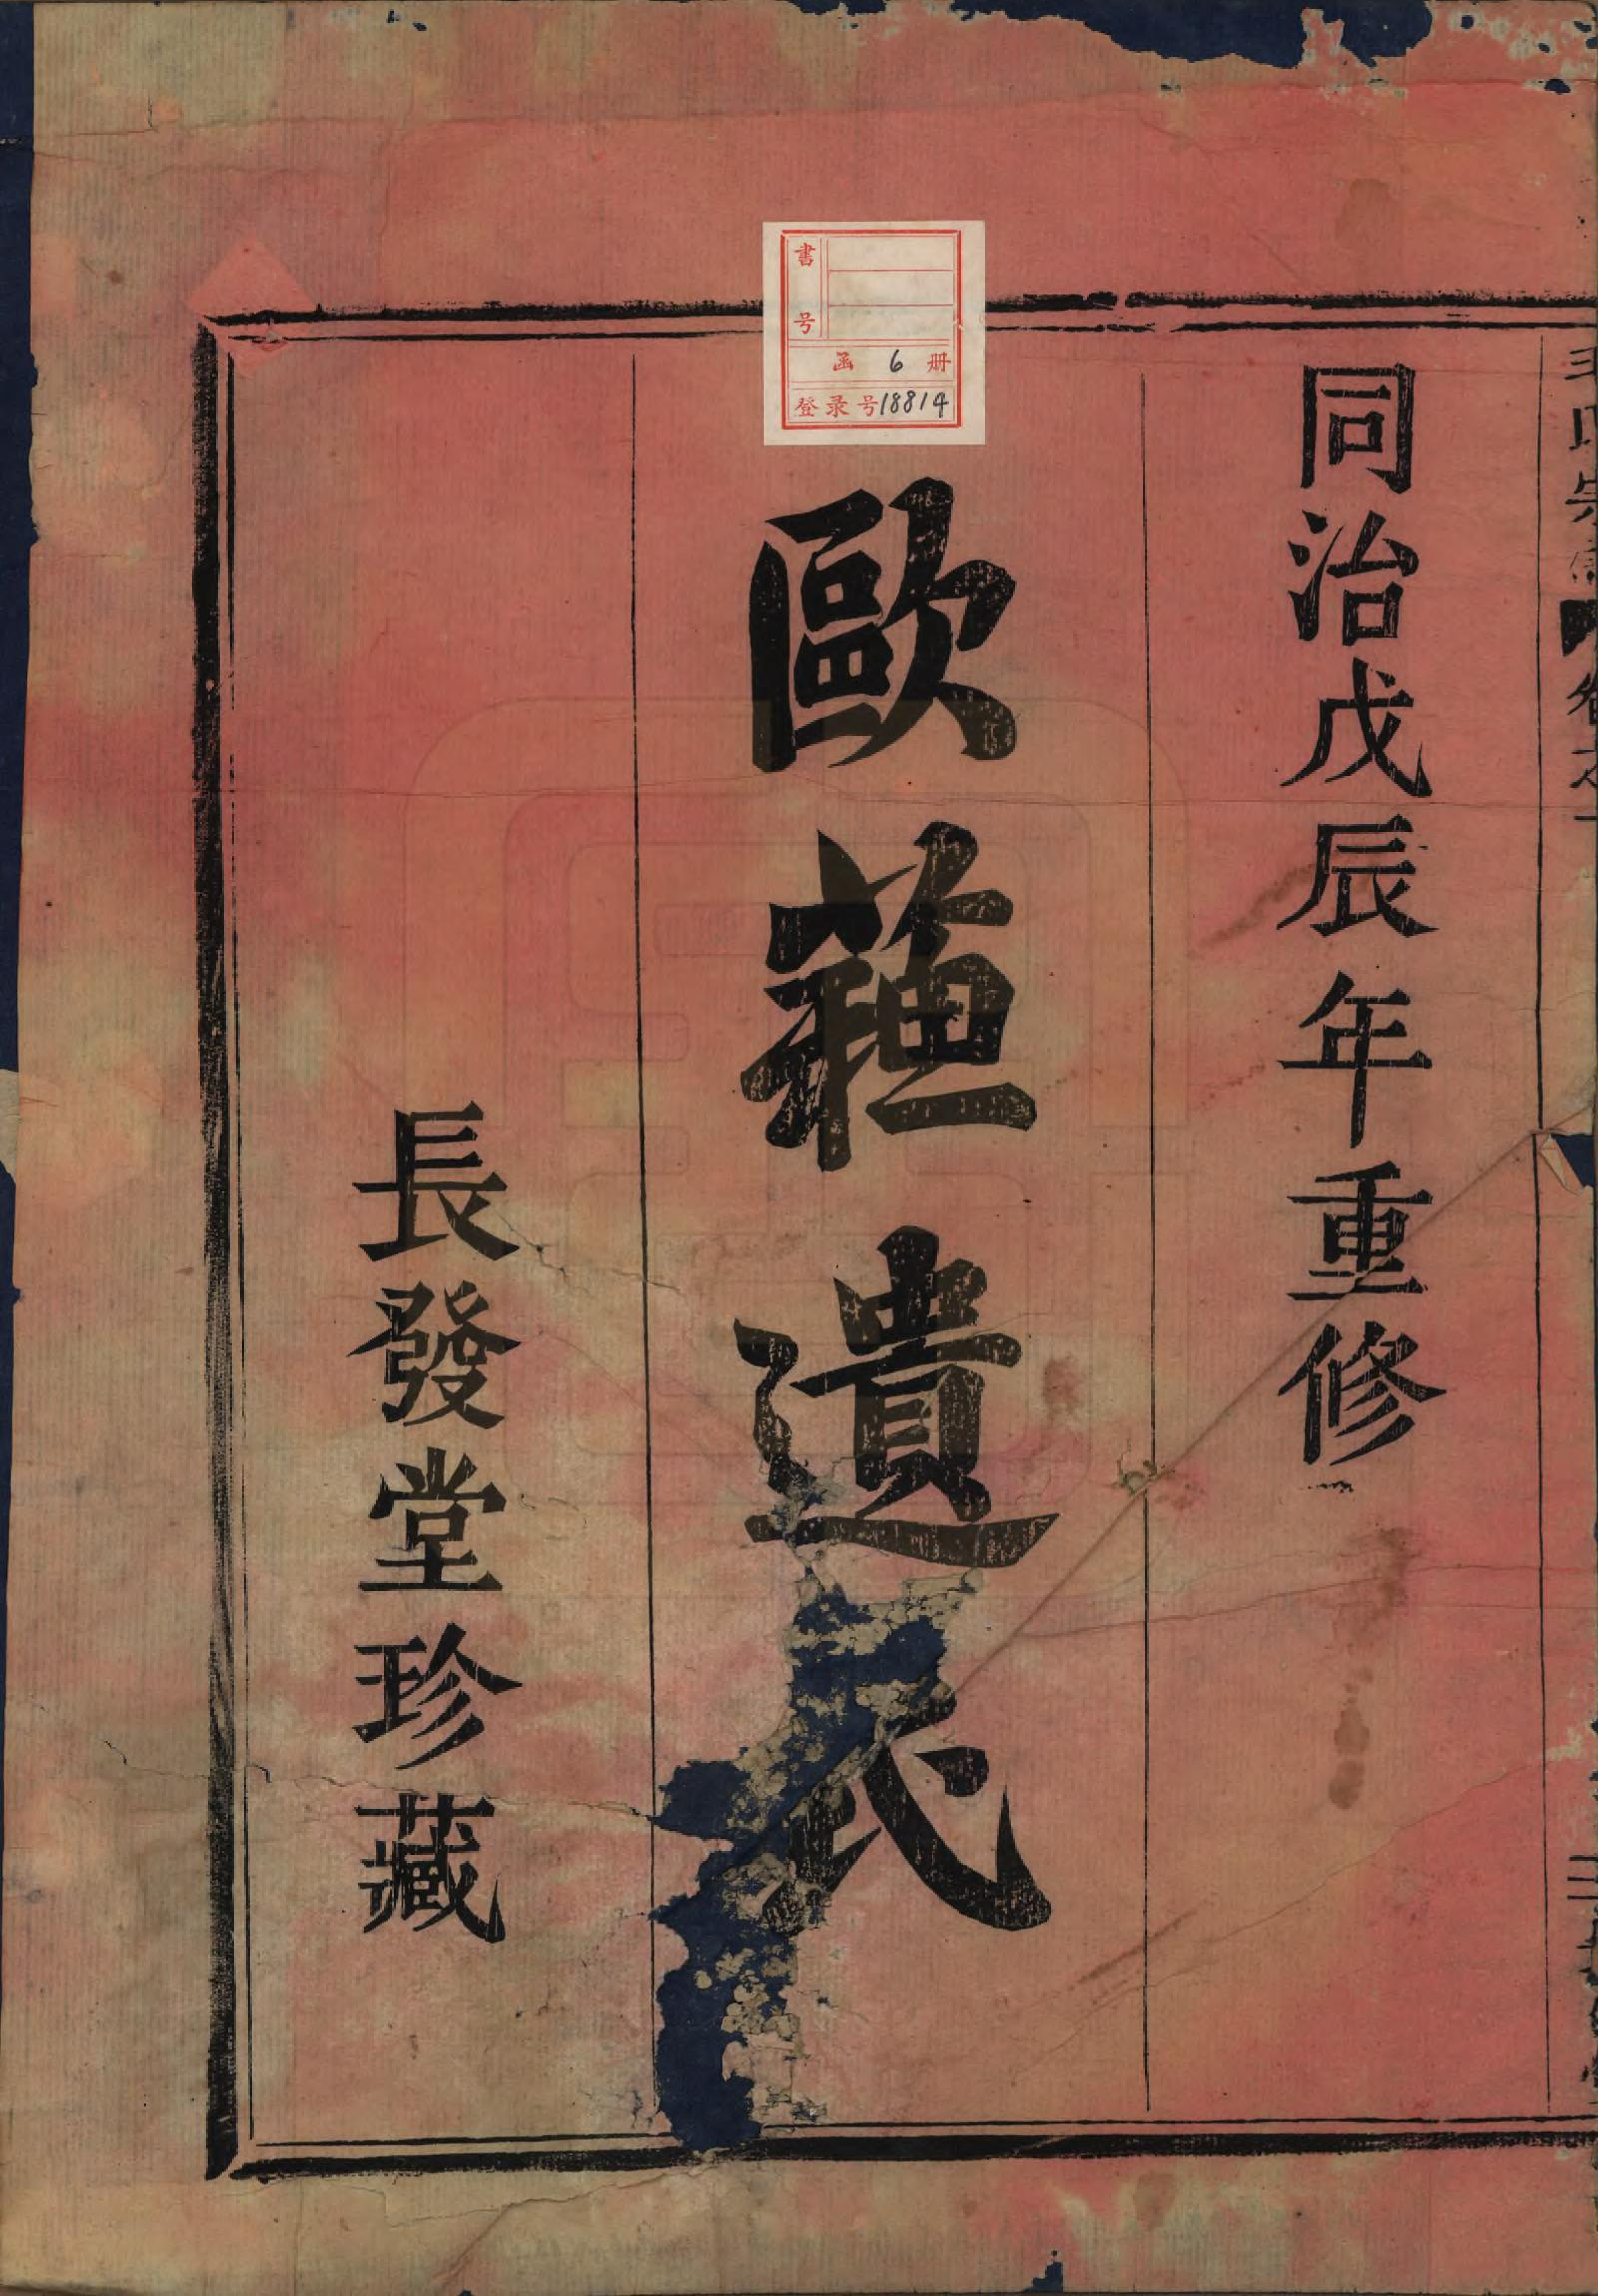 同治戊辰年重修
歐蘓遺
長發堂珍藏
書号
函 6 册
登录号18814